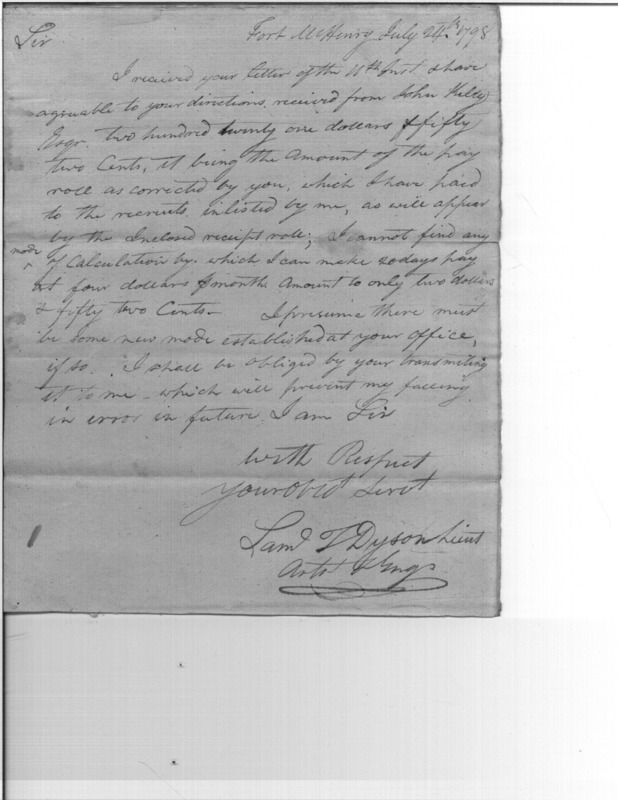 Fort McHenry July 24th 1798
Sir
I recieved your letter of the 11th Inst. & have
agreeable to your directions, received from John Kilty
Esqr. two hundred twenty one dollars & fifty
two Cents, it being the Amount of the pay
roll as corrected by you, which I have paid
to the recruits inlisted by me, as will appear
by the Inclosed receipt role; I cannot find any
mode
of Calculation by which I can make 20 days pay
at four dollars pr month Amount to only two dollars
& fifty two Cents - I presume there must
be some new mode established at your office,
if so. I shall be obliged by your transmiting
it to me - which will prevent my falling
in error in future. I am Sir
with Respect
your Obedt Servt
Saml T Dyson Lieut
Arts & Engs